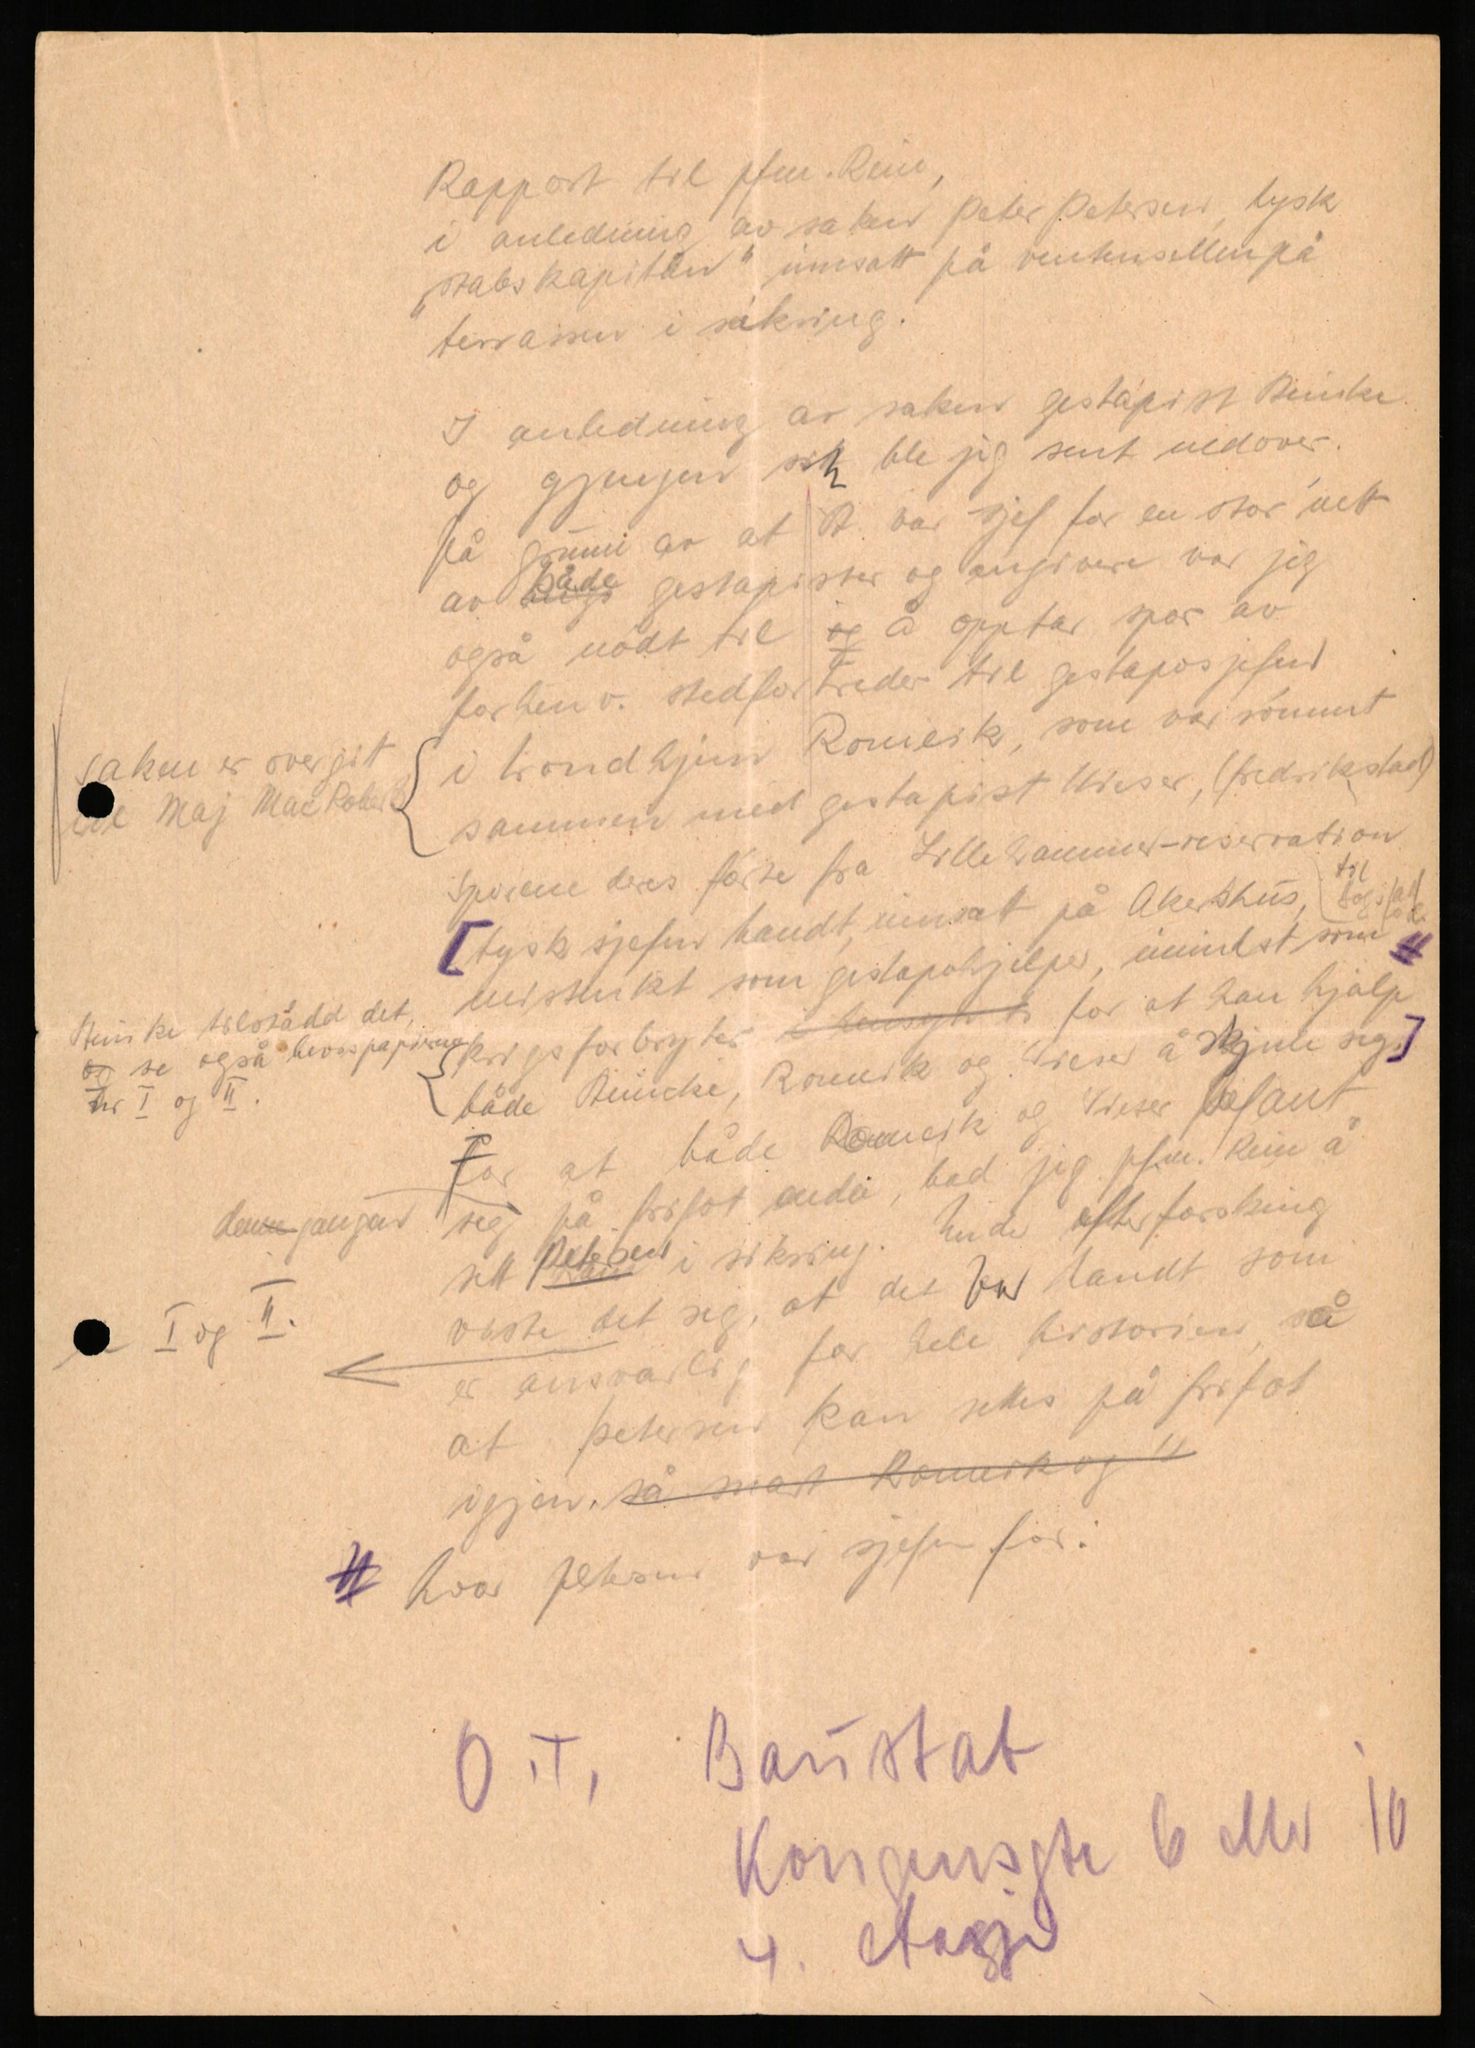 Rapport til pfm. Rein,
i anledning av saken Peter Petersen, tysk
"stabskapitän" innsatt på venteucellen på
terrassen i sikring.
I anledning av saken gestapist Beincke
og gjengen sin ble jeg sent nedover.
På grunn av at B. var sjef for en stor nett
av både gestapister og angivere var jeg
også nödt til og å opptar spor av
forhenv. stedfortreder til gestaposjefen
i trondhjem Romeik, som var römmt
sammen med gestapist Wieser, (fredrikstad)
saken er overgitt
til Maj MacRoberts
Sporene deres förte fra Lillehammer-reservation
[tysk sjefen handt, innsatt på Akershus, til
mistenkt som gestapohjelper, minst som #
krigsforbryter for at han hjalp
både Beincke, Romeik og Wieser å skjule seg.]
Beinke tilstådd det,
og se også bevispapirene
Nr I og II.
For at både Romeik og Wieser befant
seg på frifot enda, bad jeg pfm. Rein å
sett Petersen i sikring. Under efterforsking
denne gangen
viste det seg, at det var handt som
er ansvarlig for hele historien, så
I og II.
at Petersen kan settes på frifot
igjen. så snart Romeik og "
# hvor Petersen var sjefen for.
O.T. Baustab
Kongensgte 6 eller 10
4. etasje